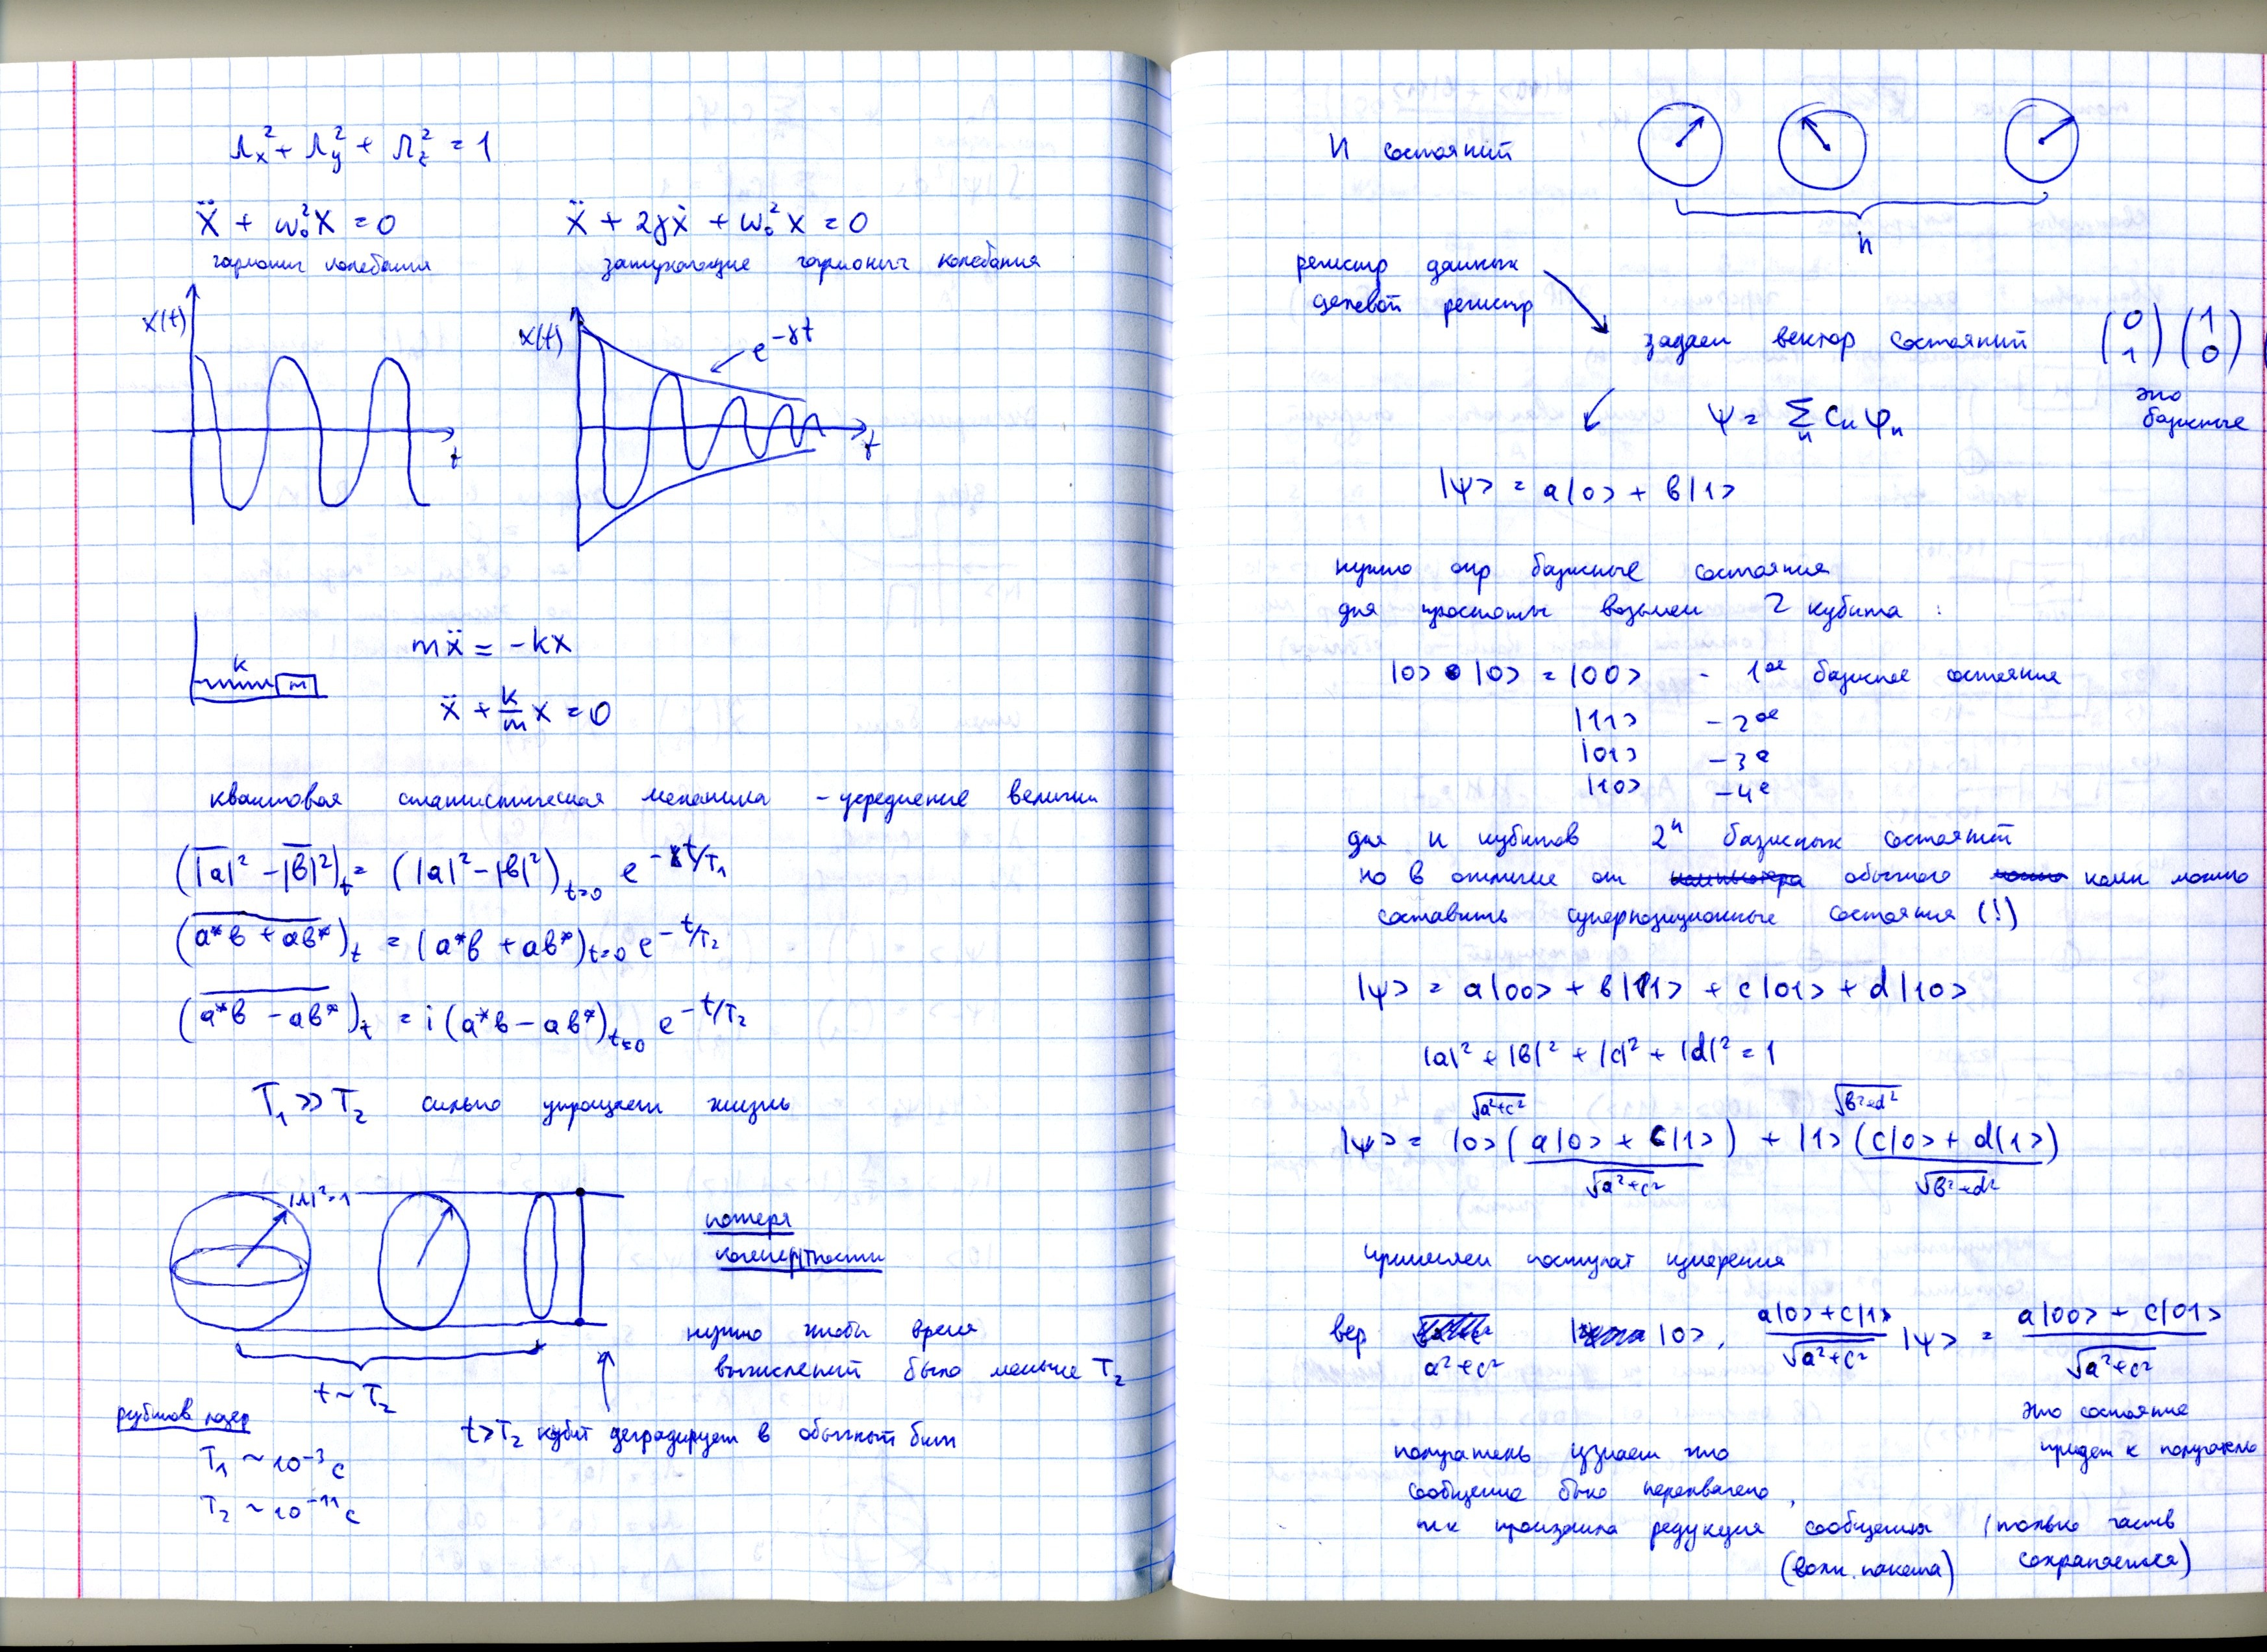 Λx² + Λy² + Λz² = 1
ẍ + ω₀²x = 0
гармонич колебания
ẍ + 2γẋ + ω₀²x = 0
затухающие гармонич колебания
x(t)
t
x(t)
e^(-γt)
t
k
m
mẍ = -kx
ẍ + k/m x = 0
квантовая статистическая механика - усреднение величин
(|a|² - |b|²)t = (|a|² - |b|²)t=0 e^(-t/T₁)
(a*b + ab*)t = (a*b + ab*)t=0 e^(-t/T₂)
(a*b - ab*)t = i(a*b - ab*)t=0 e^(-t/T₂)
T₁ >> T₂ сильно упрощает жизнь
|Λ|²=1
потеря
когерентности
t ~ T₂
нужно чтобы время
вычислений было меньше T₂
t > T₂ кубит деградирует в обычный бит
T₁ ~ 10⁻³ с
T₂ ~ 10⁻¹¹ с
N состояний
n
регистр данных
целевой регистр
задаем вектор состояний (0 1) (1 0)
это
базисные
ψ = Σn Cn φn
|ψ> = a|0> + b|1>
нужно опр базисные состояния
для простоты возьмем 2 кубита :
|0> |0> = |00> - 1ое базисное состояние
|11> - 2ое
|01> - 3е
|10> - 4е
для n кубитов 2ⁿ базисных состояний
но в отличие от обычного комп можно
составить суперпозиционные состояния (!)
|ψ> = a|00> + b|11> + c|01> + d|10>
|a|² + |b|² + |c|² + |d|² = 1
√(a²+c²) √(b²+d²)
|ψ> = |0> (a|0> + c|1>)/√(a²+c²) + |1> (c|0> + d|1>)/√(b²+d²)
применяем постулат измерения
вер a²+c² |0>, (a|0> + c|1>)/√(a²+c²) |ψ> = (a|00> + c|01>)/√(a²+c²)
это состояние
придет к получателю
получатель узнает что
сообщение было перехвачено,
тк произошла редукция сообщения (только часть
(волн. пакета) сохраняется)